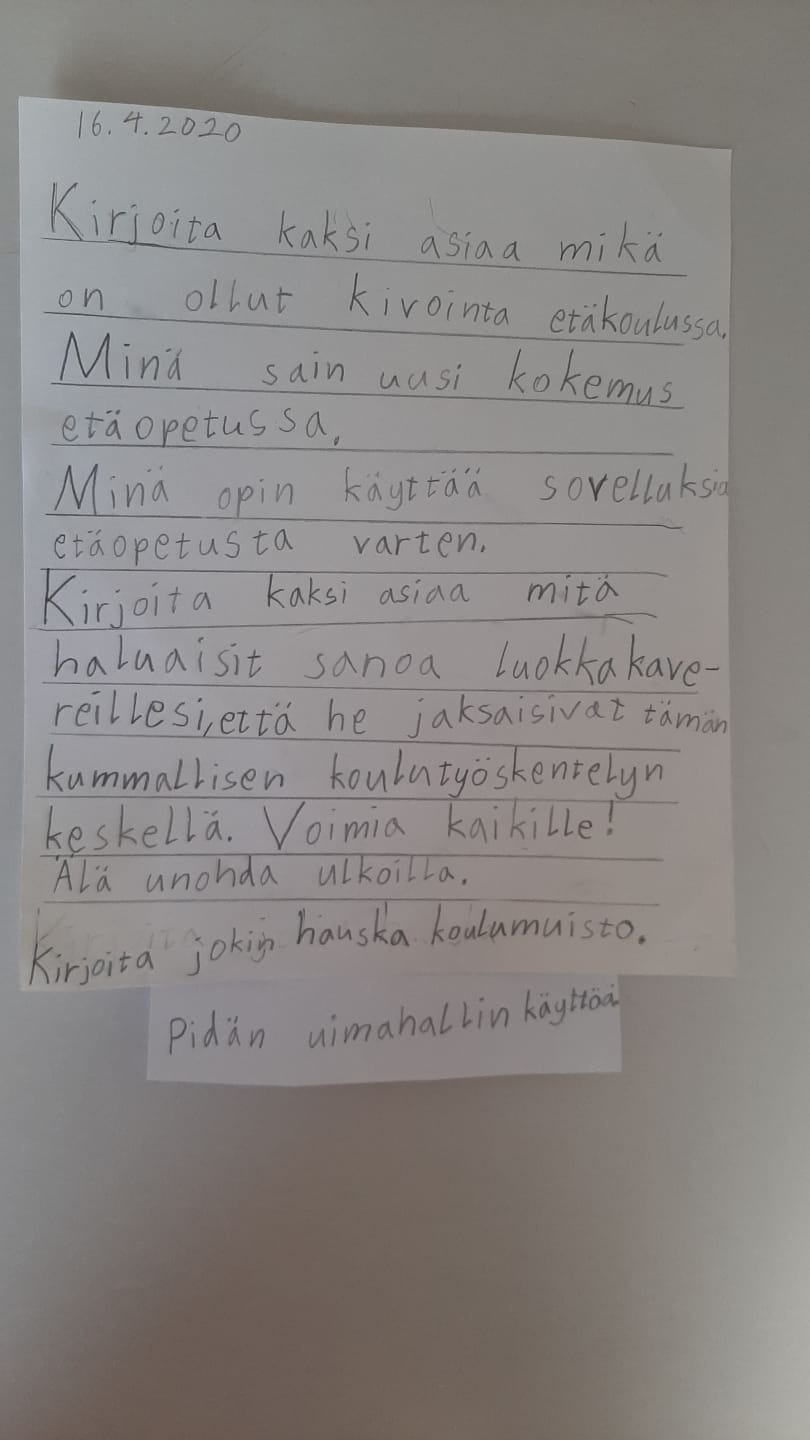 16.4.2020
Kirjoita kaksi asiaa mikä
on ollut kivointa etäkoulussa.
Minä sain uusi kokemus
etäopetussa.
Minä opin käyttää sovelluksia
etäopetusta varten.
Kirjoita kaksi asiaa mitä
haluaisit sanoa luokkakave-
reillesi, että he jaksaisivat tämän
kummallisen koulutyöskentelyn
keskellä. Voimia kaikille!
Älä unohda ulkoilla.
Kirjoita jokin hauska koulumuisto.
Pidän uimahallin käyttöä